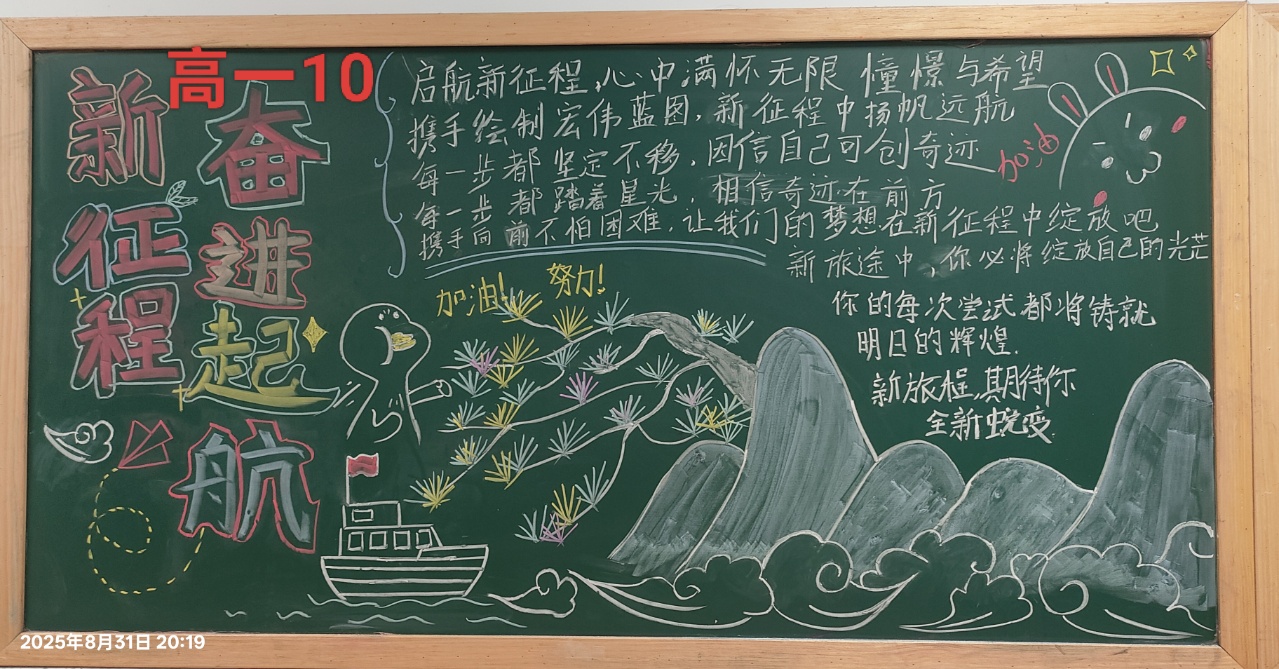 高一10
新征程
奋进起航
启航新征程,心中满怀无限憧憬与希望
携手绘制宏伟蓝图,新征程中扬帆远航
每一步都坚定不移,因信自己可创奇迹
每一步都踏着星光,相信奇迹在前方
携手向前不怕困难,让我们的梦想在新征程中绽放吧
新旅途中,你必将绽放自己的光芒
加油
加油! 努力!
你的每次尝试都将铸就
明日的辉煌.
新旅程,期待你
全新蜕变
2025年8月31日 20:19